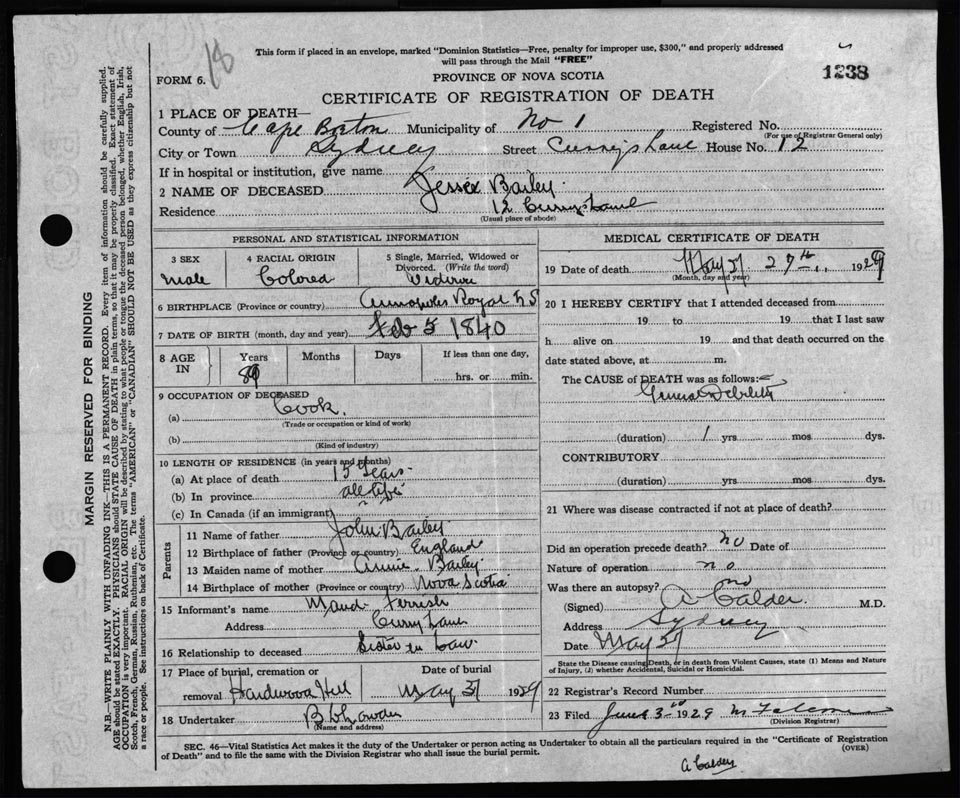 18
This form if placed in an envelope, marked "Dominion Statistics—Free, penalty for improper use, $300," and properly addressed
will pass through the Mail "FREE"
FORM 6.
PROVINCE OF NOVA SCOTIA
1238
CERTIFICATE OF REGISTRATION OF DEATH
1 PLACE OF DEATH—
County of Cape Breton Municipality of No 1 Registered No.
(For use of Registrar General only)
City or Town Sydney Street Curry's Lane House No. 12
If in hospital or institution, give name
2 NAME OF DECEASED Jessie Bailey
Residence 12 Currys Lane
(Usual place of abode)
PERSONAL AND STATISTICAL INFORMATION
3 SEX
male
4 RACIAL ORIGIN
Colored
5 Single, Married, Widowed or
Divorced. (Write the word)
6 BIRTHPLACE (Province or country) Annapolis Royal N.S
7 DATE OF BIRTH (month, day and year) Feb 5 1840
8 AGE
IN
Years
89
Months
Days
If less than one day,
hrs. or min.
9 OCCUPATION OF DECEASED
(a) Cook
(Trade or occupation or kind of work)
(b)
(Kind of industry)
10 LENGTH OF RESIDENCE (in years and months)
(a) At place of death 15 Years
(b) In province all life
(c) In Canada (if an immigrant)
Parents
11 Name of father John Bailey
12 Birthplace of father (Province or country) England
13 Maiden name of mother Annie Bailey
14 Birthplace of mother (Province or country) Nova Scotia
15 Informant's name Maud
Address Curry Lane
16 Relationship to deceased Sister in Law
17 Place of burial, cremation or
removal Hardwood Hill
Date of burial
May 31 1929
18 Undertaker
(Name and address)
MEDICAL CERTIFICATE OF DEATH
19 Date of death May 27th 1929
(Month, day and year)
20 I HEREBY CERTIFY that I attended deceased from
19 to 19 that I last saw
h alive on 19 and that death occurred on the
date stated above, at m.
The CAUSE of DEATH was as follows:
General Debility
(duration) 1 yrs. mos dys.
CONTRIBUTORY
(duration) yrs. mos. dys.
21 Where was disease contracted if not at place of death?
Did an operation precede death? no Date of
Nature of operation no
Was there an autopsy? no
(Signed) A Calder M.D.
Address Sydney
Date May 31
State the Disease causing Death, or in death from Violent Causes, state (1) Means and Nature
of Injury, (2) whether Accidental, Suicidal or Homicidal.
22 Registrar's Record Number
23 Filed June 3rd 1929
(Division Registrar)
SEC. 46—Vital Statistics Act makes it the duty of the Undertaker or person acting as Undertaker to obtain all the particulars required in the "Certificate of Registration
of Death" and to file the same with the Division Registrar who shall issue the burial permit.
(OVER)
A Calder
MARGIN RESERVED FOR BINDING
N.B.—WRITE PLAINLY WITH UNFADING INK—THIS IS A PERMANENT RECORD. Every item of information should be carefully supplied.
AGE should be stated EXACTLY. PHYSICIANS should STATE CAUSE OF DEATH in plain terms, so that it may be properly classified. Exact statement of
OCCUPATION is very important. RACIAL ORIGIN will be described by stating to what people or tongue the deceased person belonged, whether English, Irish,
Scotch, French, German, Russian, Ruthenian, etc. The terms "AMERICAN" or "CANADIAN" SHOULD NOT BE USED as they express citizenship but not
a race or people. See instructions on back of Certificate.